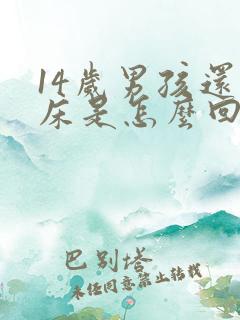 14歲男孩還
床是怎麼回
巴別塔
未任同意禁止转载